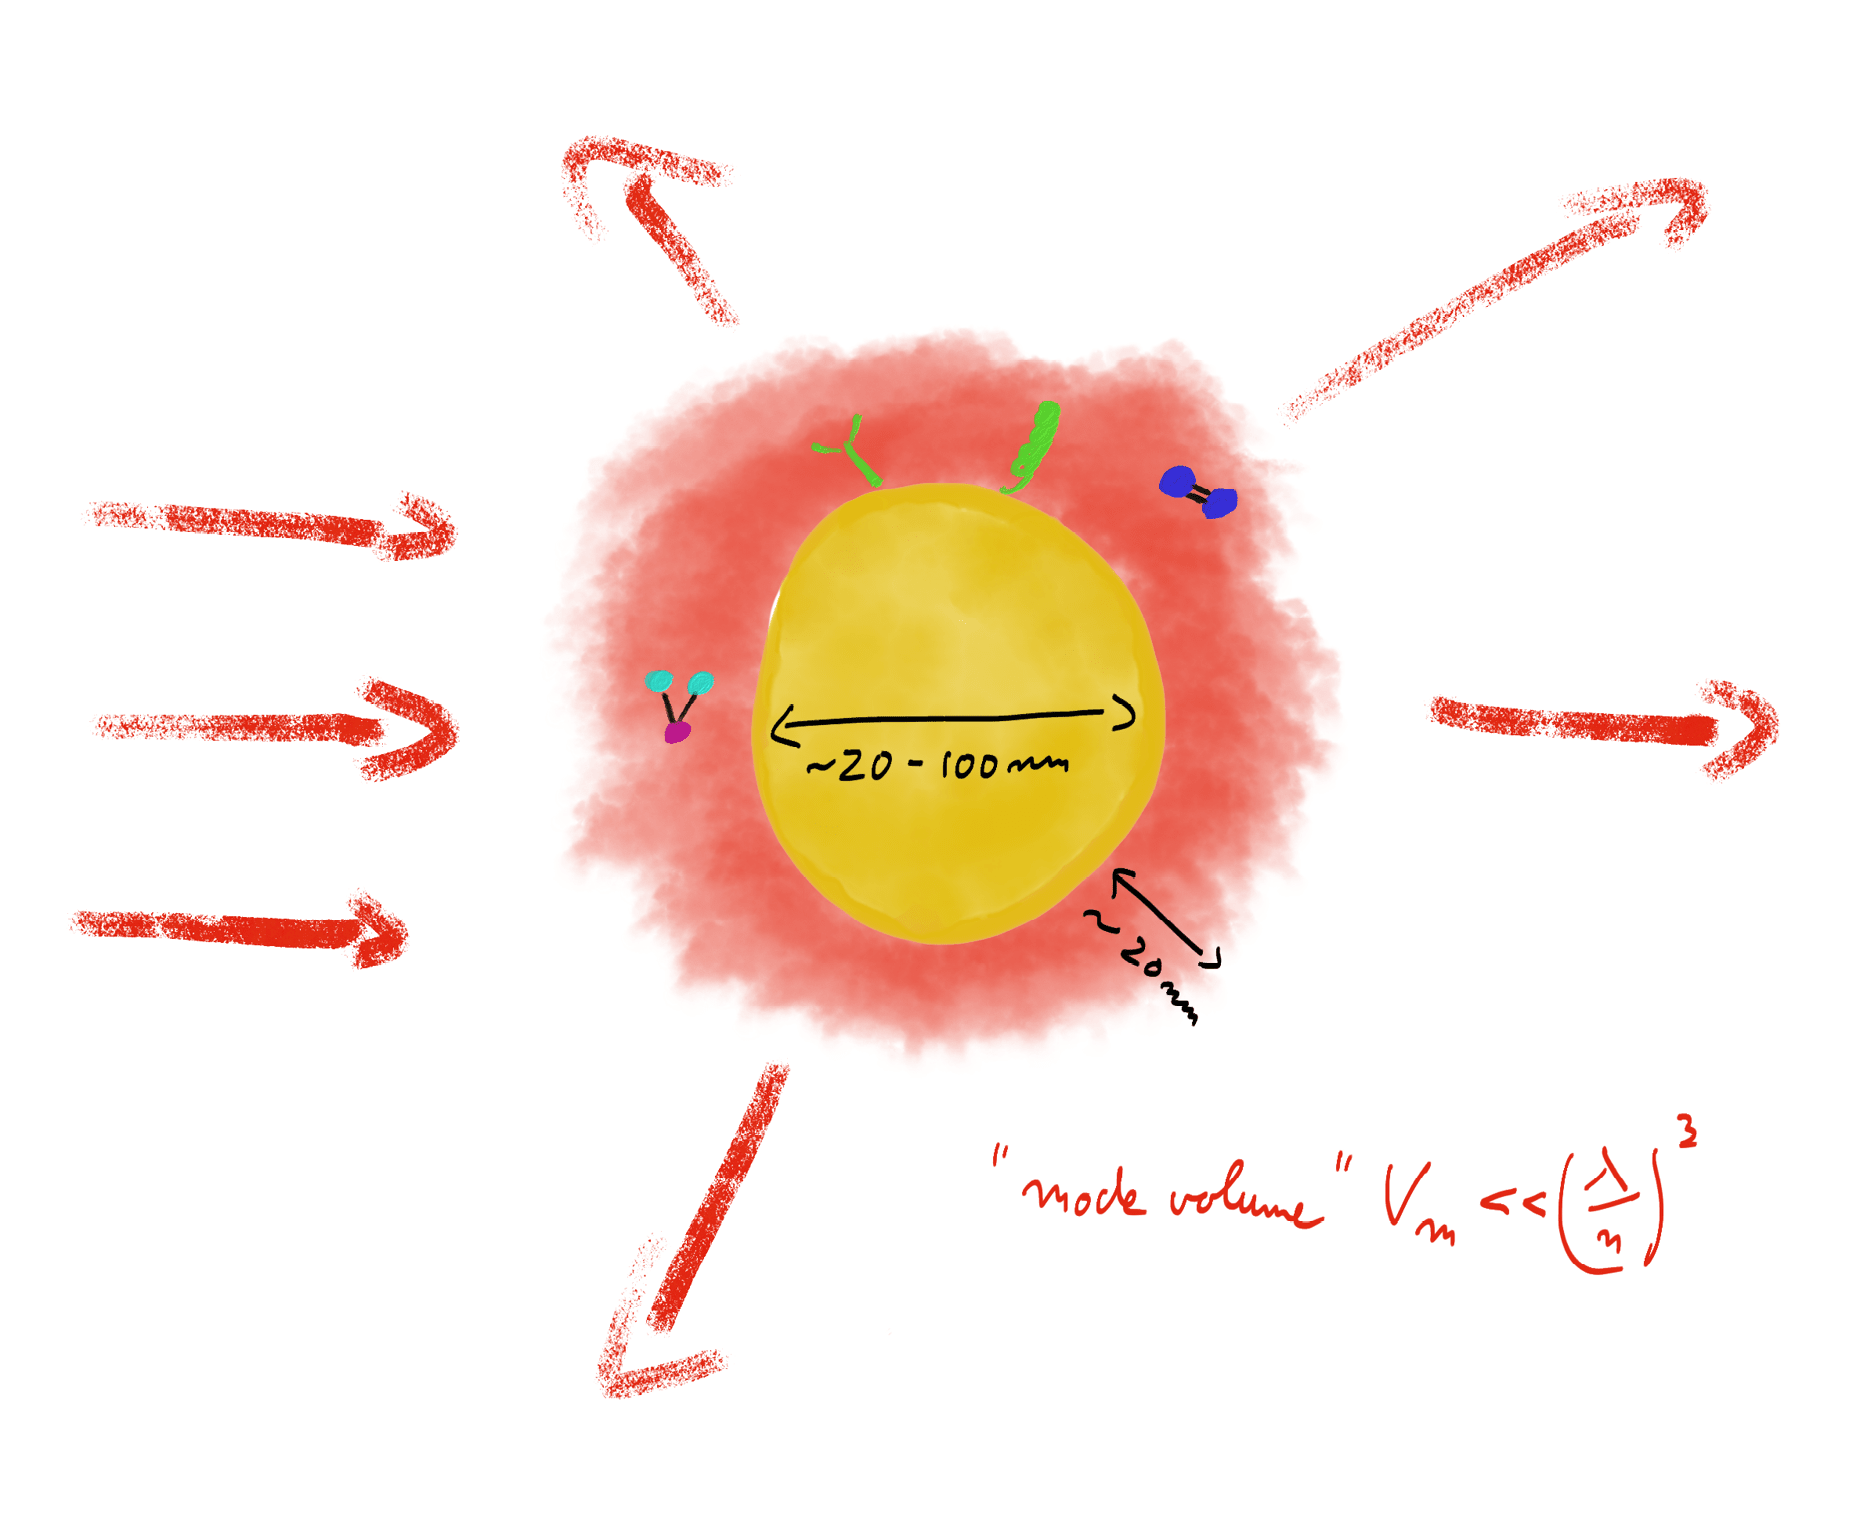 ~20-100nm
~20nm
"mode volume" Vm <<(λ/n)³